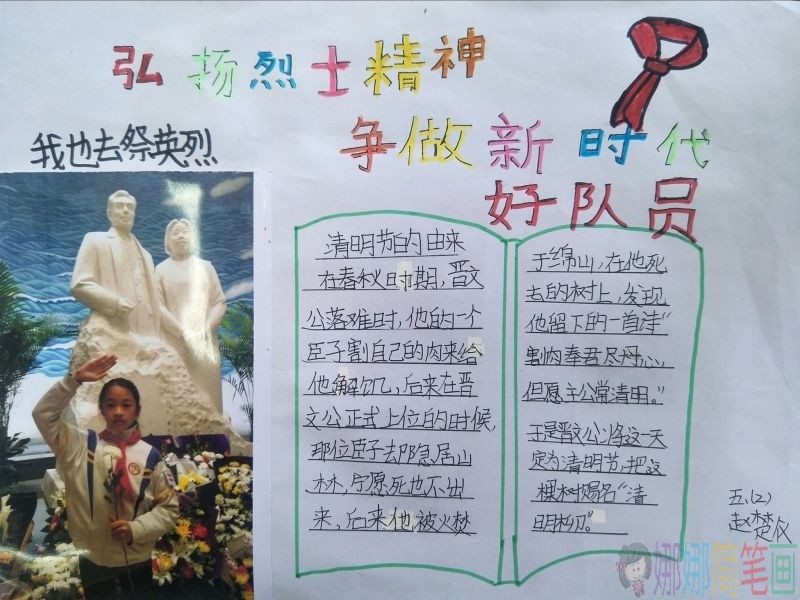 弘扬烈士精神
争做新时代
好队员
我也去祭英烈
清明节的由来
在春秋时期，晋文
公落难时，他的一个
臣子割自己的肉来给
他解饥，后来在晋
文公正式上位的时候，
那位臣子去隐居山
林，宁愿死也不出
来，后来他被火焚
于绵山，在他死
去的树上，发现
他留下的一首诗“
割肉奉君尽丹心，
但愿主公常清明。”
于是晋文公将这一天
定为清明节，把这
棵树赐名“清
明柳”。
五.(2)
赵楚仪
娜娜简笔画